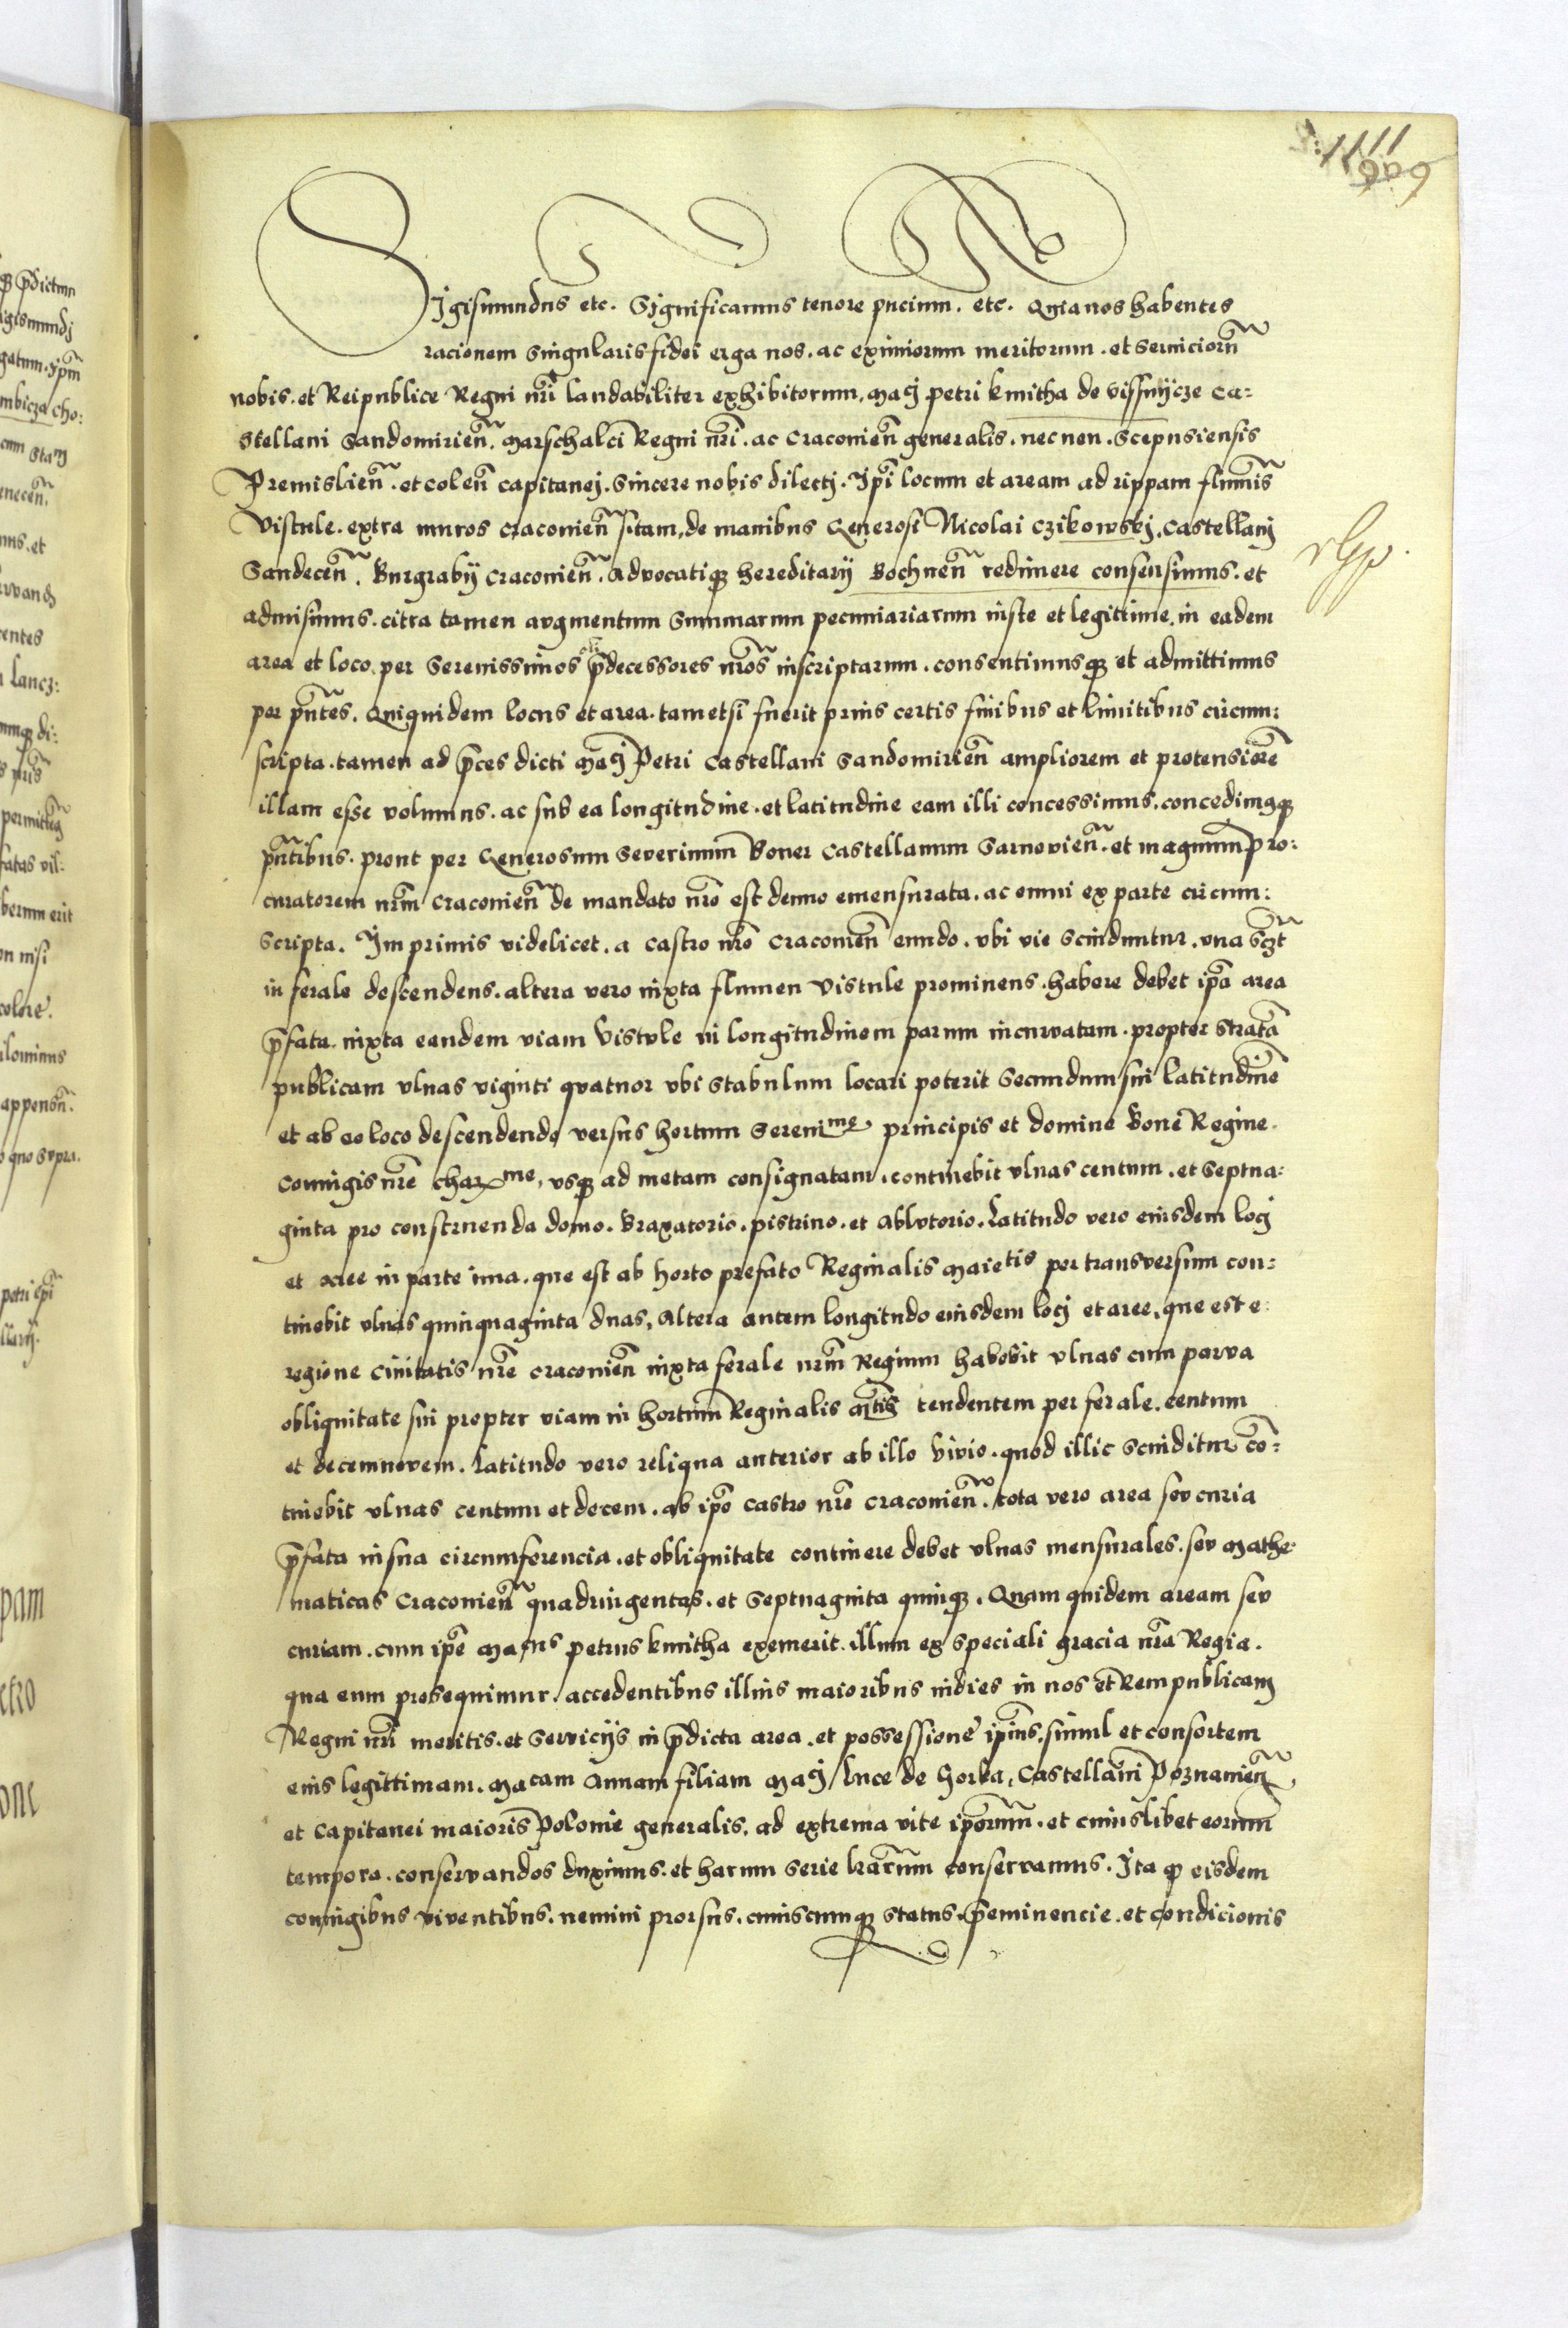 1111
609
Sigismundus etc. Significamus tenore pncium. etc. Quia nos habentes
racionem singularis fidei erga nos. ac eximiorum meritorum. et serviciorū
nobis. et Reipublice Regni nri laudabiliter exhibitorum, Magci petri kmitha de vissnijcze Ca:
stellani Sandomirien. Marschalci Regni nri. ac Craconien generalis. necnon. Scepusiensis
Premislien. et colen Capitanej. Sincere nobis dilectj. Ipi locum et aream ad rippam fluminis
Vistule. extra muros Craconien sitam, de manibus Generosi Nicolai Czikowskj, Castellanj
Sandecen. Burgrabij Craconien. Advocatiqz hereditarij Bochnen redimere consensimus. et
admisimus. citra tamen augmentum summarum pecuniariarum iuste et legittime. in eadem
area et loco. per Serenissimos predecessores nros inscriptarum. consentimusqz et admittimus
per pntes. Quiquidem locus et area. tametsi fuerit prius certis finibus et limitibus circum:
scripta. tamen ad preces dicti Magci Petri Castellani Sandomirien ampliorem et protensiorē
illam esse volumus. ac sub ea longitudine. et latitudine eam illi concessimus. concedimusqz
pntibus. prout per Generosum Severinum Boner Castellanum Sarnovien. et magnum pro:
curatorem nrm Craconien de mandato nro est denuo emensurata. ac omni ex parte circum:
scripta. Imprimis videlicet. a castro nro Craconien eundo. vbi vie scinduntur. vna sczt
in ferale descendens. altera vero iuxta flumen Vistule prominens. habere debet ipa area
prefata. iuxta eandem viam Vistvle in longitudinem parum incurvatam. propter stratā
publicam vlnas viginti quatuor vbi stabulum locari poterit secundum sui latitudinē
et ab eo loco descendendo versus hortum Sereniᵐᵉ principis et domine Bone Regine.
coniugis nre charᵐᵉ, vsqz ad metam consignatam. continebit vlnas centum. et septua:
ginta pro construenda domo. Braxatorio. pistrino. et ablvtorio. Latitudo vero eiusdem locj
et aree in parte ima. que est ab horto prefato Reginalis Maietis per transversum con:
tinebit vlnas quinquaginta duas, Altera autem longitudo eiusdem locj et aree, que est e
regione Civitatis nre Craconien iuxta ferale nrm Regium habebit vlnas cum parva
obliquitate sui propter viam in hortum Reginalis Mtis tendentem per ferale. centum
et decemnovem. Latitudo vero reliqua anterior ab illo bivio. quod illic scinditur cō:
tinebit vlnas centum et decem. ab ipo castro nro Craconien. tota vero area sev curia
prefata in sua circumferencia. et obliquitate continere debet vlnas mensurales. sev Mathe:
maticas Craconien quadringentas. et septuaginta quinqz. Quam quidem aream sev
curiam. cum ipe Magcus petrus kmitha exemerit. illum ex speciali gracia nra Regia.
qua eum prosequimur. accedentibus illius maioribus indies in nos et Rempublicam
Regni nri meritis. et serviciis in predicta area. et possessione ipius. simul et consortem
eius legittimam. Magcam Annam filiam Magci luce de Gorka, Castellani Poznanien,
et Capitanei maioris Polonie generalis, ad extrema vite ipsorum. et cuiuslibet eorum
tempora. conservandos duximus. et harum serie lrarum conservamus. Ita qd eisdem
coniugibus viventibus. nemini prorsus. cuiuscumqz status. preeminencie. et condicionis